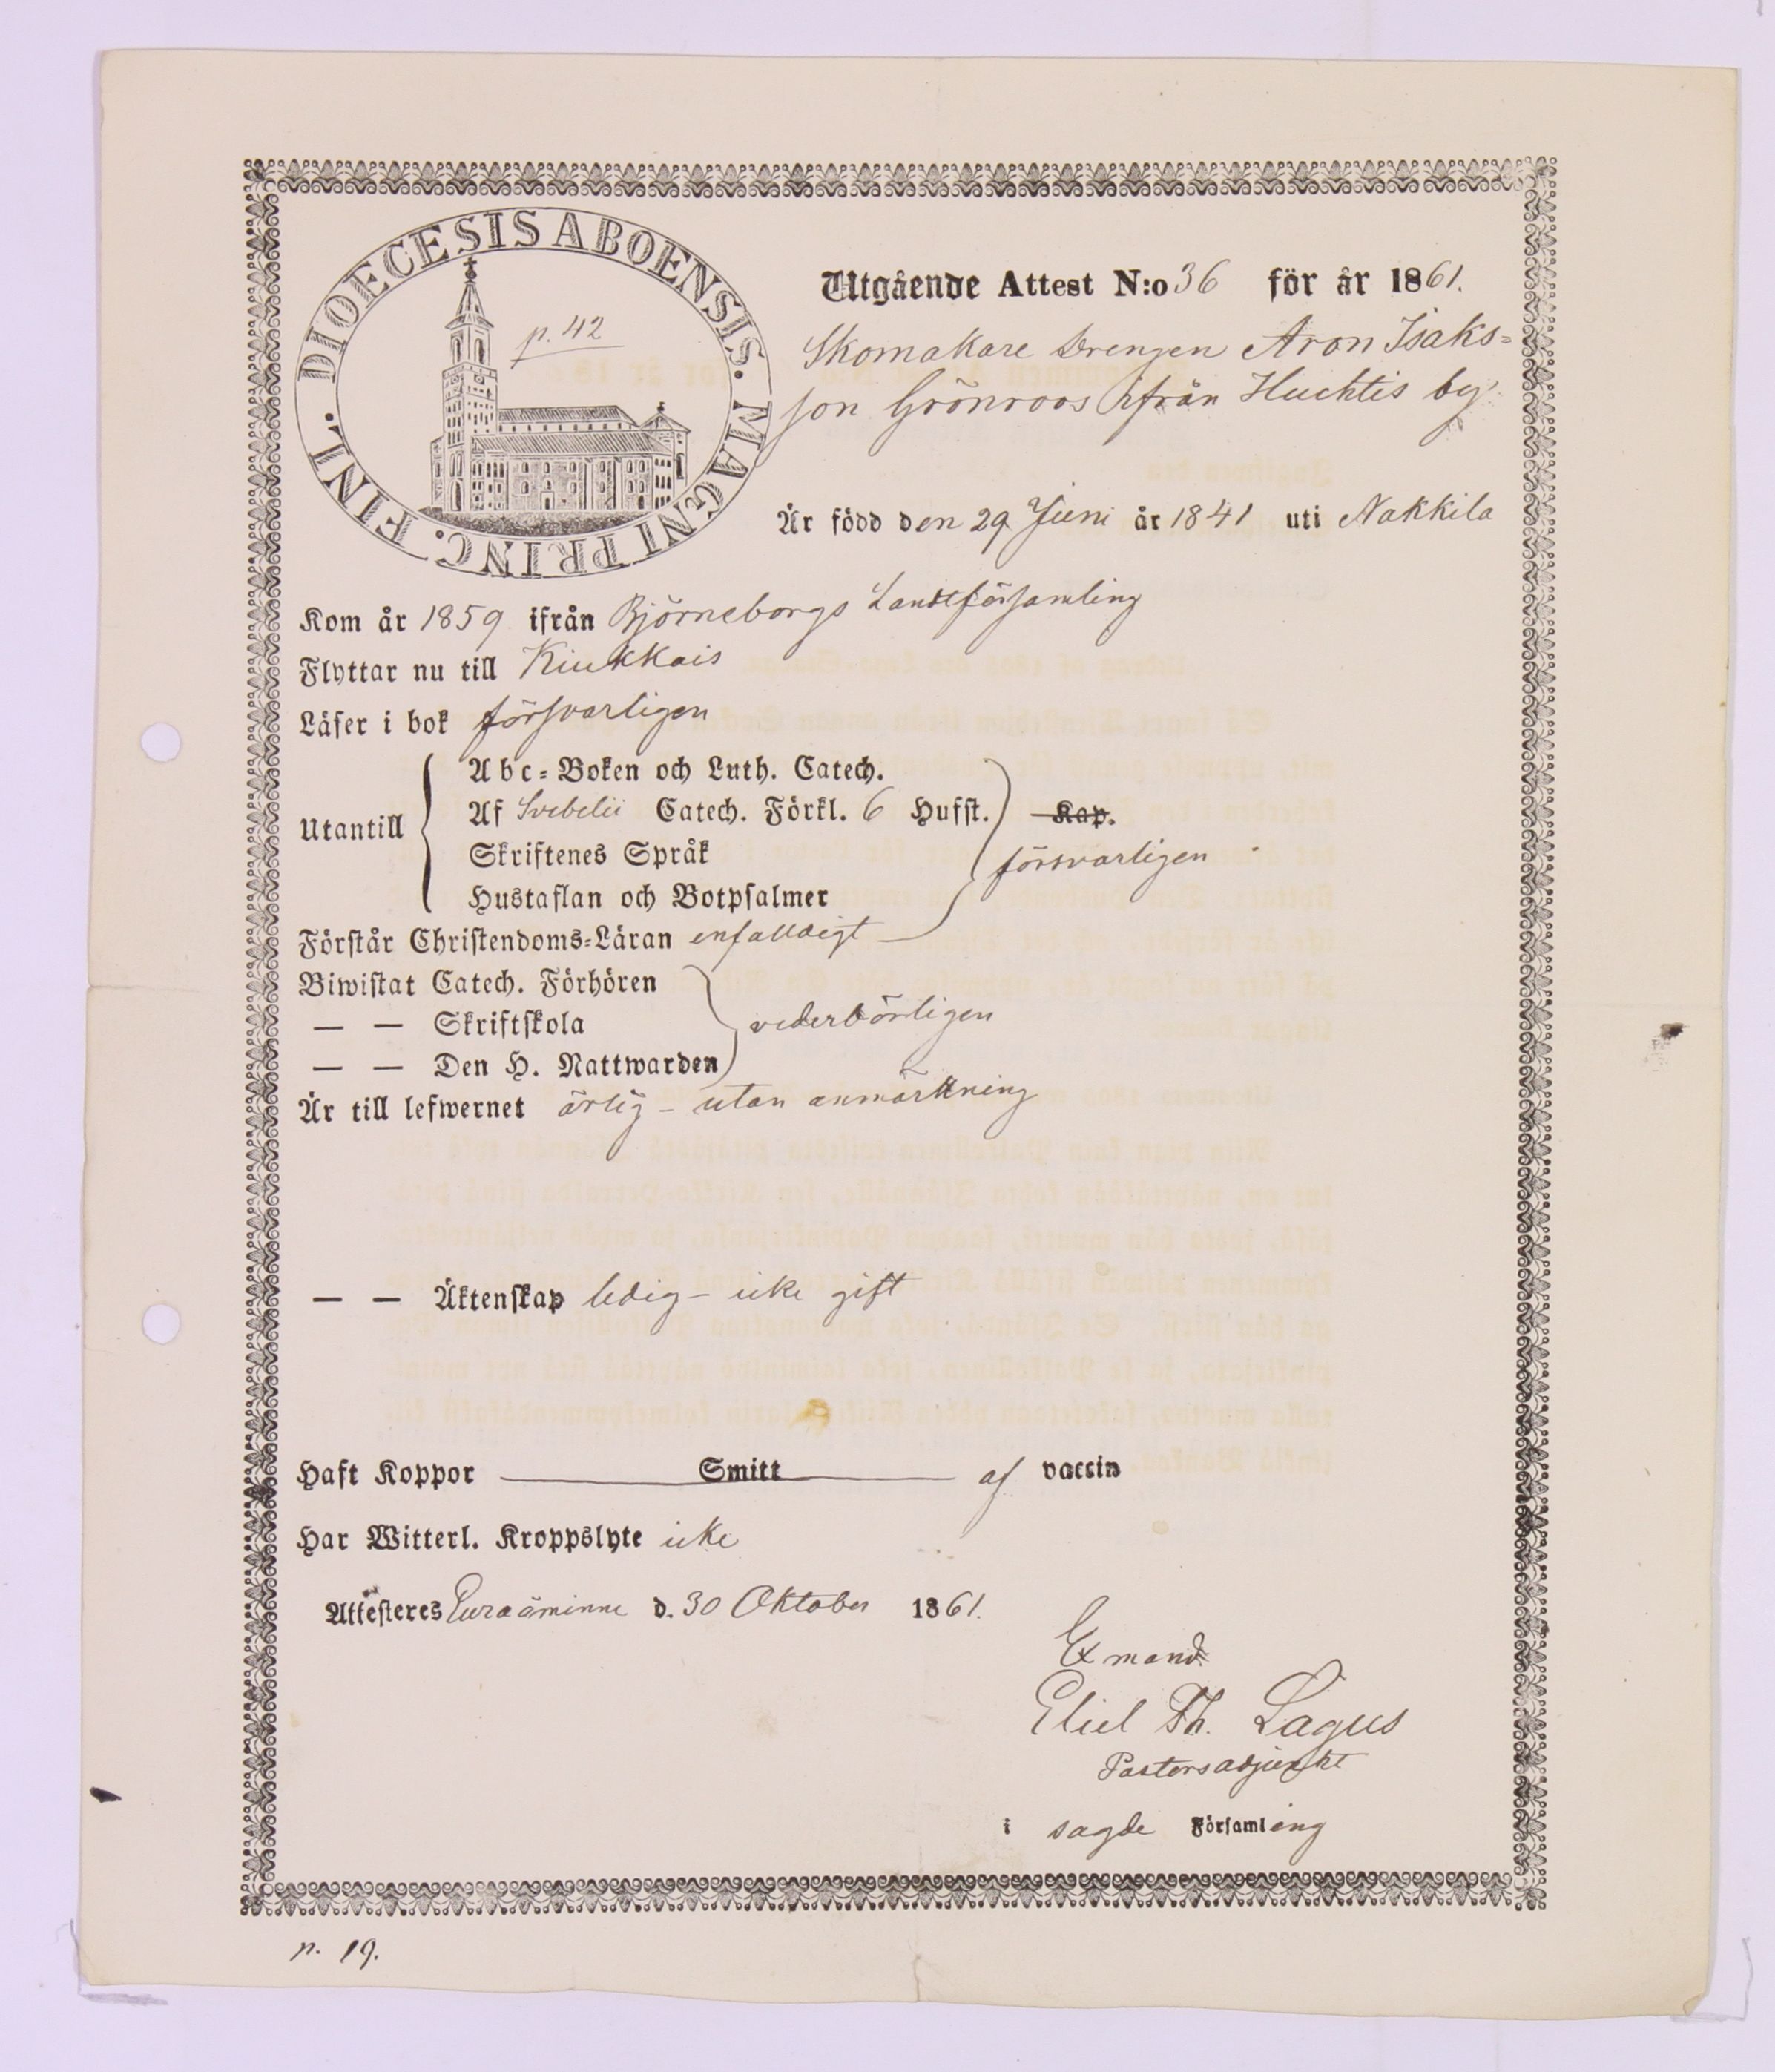 DIOECESIS ABOENSIS. MAGNI PRINC. FINL.
p. 42
Utgående Attest N:o 36 för år 1861.
Skomakare Drengen Aron Isaks=
son Grönroos ifrån Huchtis by
Är född den 29 Juni år 1841 uti Nakkila
Kom år 1859 ifrån Björneborgs Landtförsamling
Flyttar nu till Kiukkais
Läser i bok försvarligen
Utantill
Abc=Boken och Luth. Catech.
Af Svebelii Catech. Förkl. 6 Hufst. Kap.
Skriftenes Språk försvarligen
Hustaflan och Botpsalmer
Förstår Christendoms=Läran enfalldigt
Biwistat Catech. Förhören
— — Skriftskola vederbörligen
— — Den H. Nattwarden
Är till lefwernet ärlig - utan anmärkning
— — Äktenskap ledig - icke gift
Haft Koppor Smitt af vaccin
Har Witterl. Kroppslyte icke
Attesteres Euraåminne d. 30 Oktober 1861.
Ex mand.
Eliel Th. Lagus
Pastorsadjunkt
i sagde Församling
p. 19.